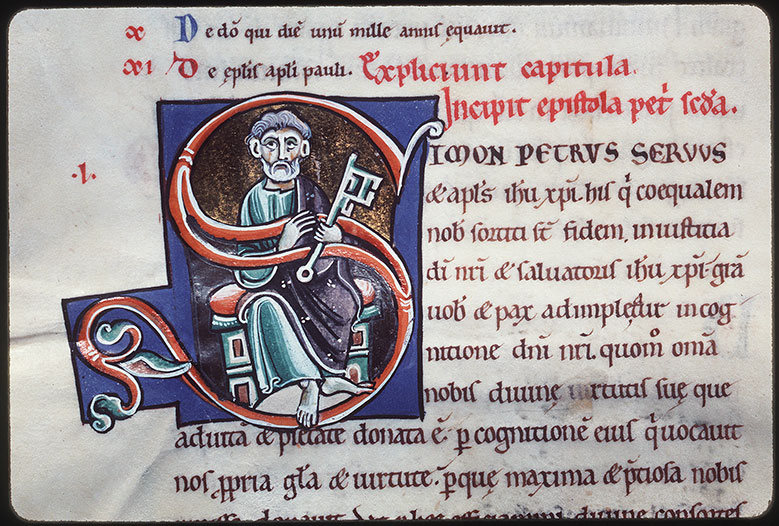 x De dõ qui diẽ unũ mille annis ęquauit.
xi De ęplis apli pauli. Expliciunt capitula.
Incipit epistola petri scda.
.i. SIMON PETRVS SERVVS
& apls ihu xpi. his qi coequalem
nob sortiti st fidem, iniustitia
dñi nri & saluatoris ihu xpi. grã
uob & pax adimpleatur incog
nitione dñi nri. quom̃ om̃a
nobis diuinę uirtutis suę que
aduitã & pietate donata ẽ. p cognitionẽ eius qi uocauit
nos ppria glã & uirtute. p quę maxima & p̃tiosa nobis